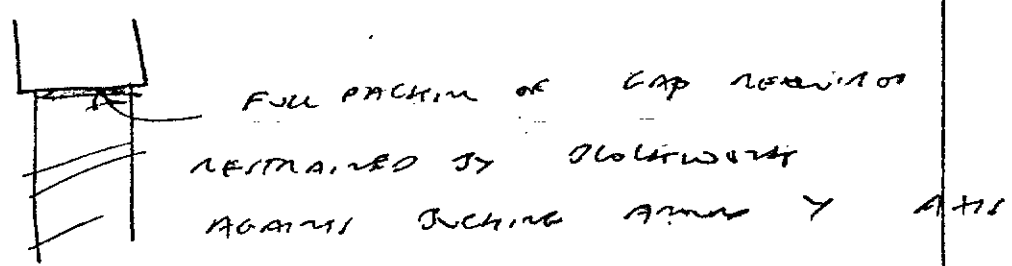 FULL PACKING OF GAP REQUIRED
RESTRAINED BY BLOCKWORK
AGAINST BUCKLING AROUND Y AXIS